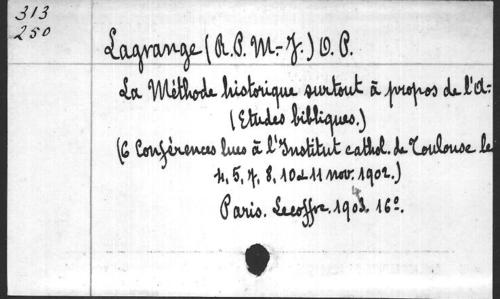 313
250
Lagrange (R.P. M.-J.) O.P.
La Méthode historique surtout à propos de l'A-
(Etudes bibliques.)
(6 Conférences lues à l'Institut cathol. de Toulouse le
4, 5, 7, 8, 10 et 11 nov. 1902.)
Paris. Lecoffre. 1903. 16º.
4